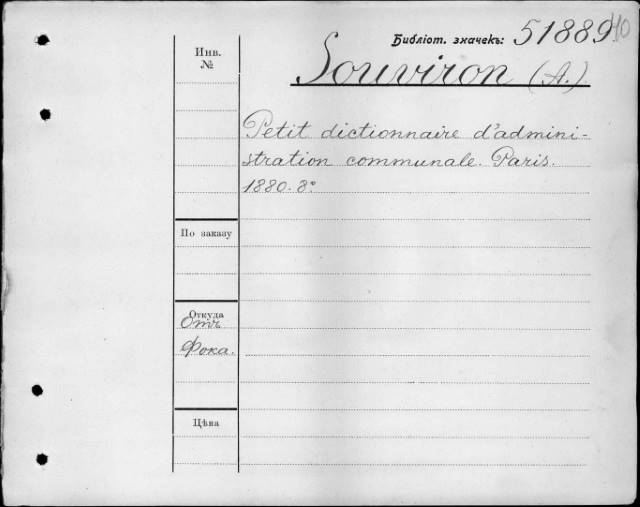 Библіот. значекъ: 51889
Souviron (A.)
Инв.
№
Petit dictionnaire d'admini-
stration communale. Paris.
1880. 8°
По заказу
Откуда
Отъ
Фока.
Цѣна